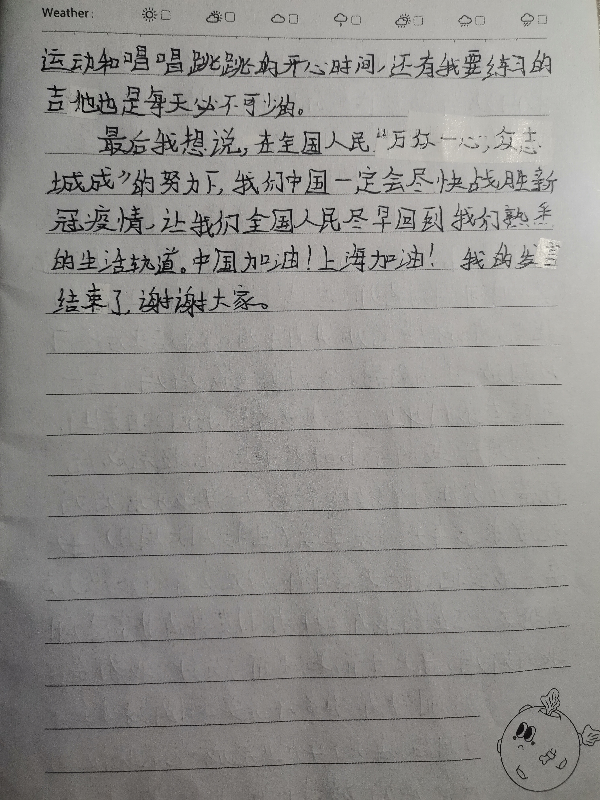 Weather:
运动和唱唱跳跳的开心时间，还有我要练习的
吉他也是每天必不可少的。
最后我想说，在全国人民“万众一心，众志
城成”的努力下，我们中国一定会尽快战胜新
冠疫情，让我们全国人民尽早回到我们熟悉
的生活轨道。中国加油！上海加油！ 我的发言
结束了，谢谢大家。